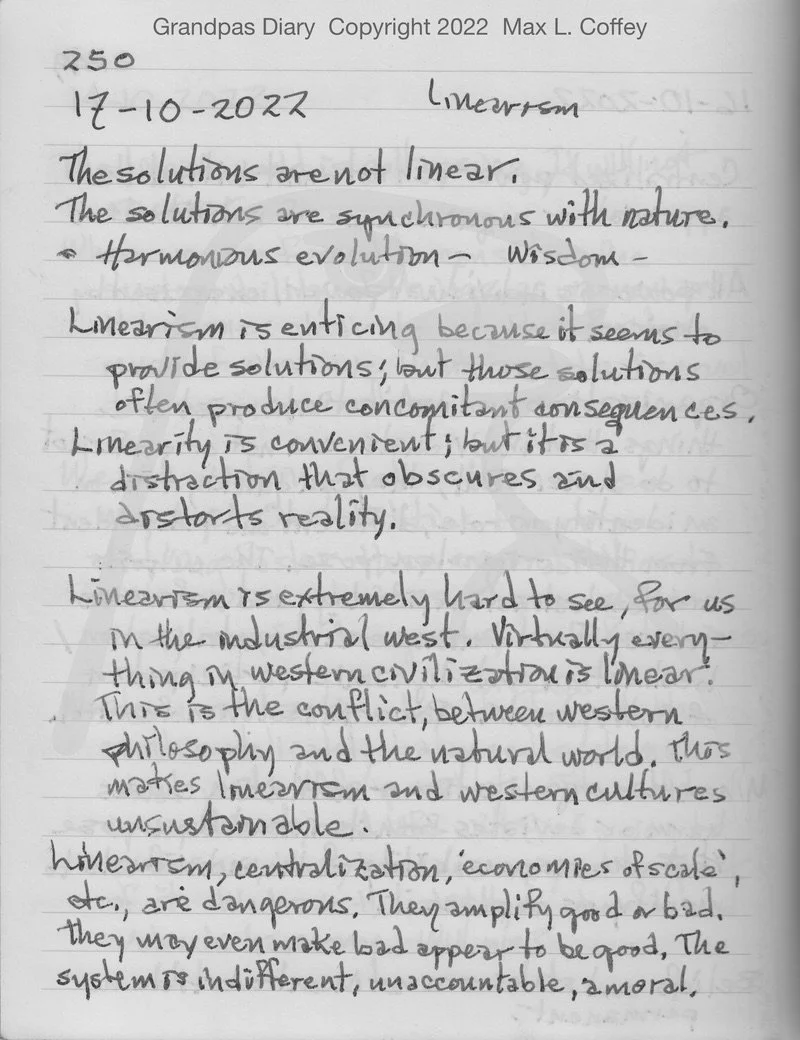 Grandpas Diary Copyright 2022 Max L. Coffey
250
17-10-2022 Linearism
The solutions are not linear.
The solutions are synchronous with nature.
Harmonious evolution — Wisdom —
Linearism is enticing because it seems to
provide solutions; but those solutions
often produce concomitant consequences.
Linearity is convenient; but it is a
distraction that obscures and
distorts reality.
Linearism is extremely hard to see, for us
in the industrial west. Virtually every-
thing in western civilization is linear.
This is the conflict, between western
philosophy and the natural world. This
makes linearism and western cultures
unsustainable.
Linearism, centralization, 'economies of scale',
etc., are dangerous. They amplify good or bad.
They may even make bad appear to be good. The
system is indifferent, unaccountable, amoral.